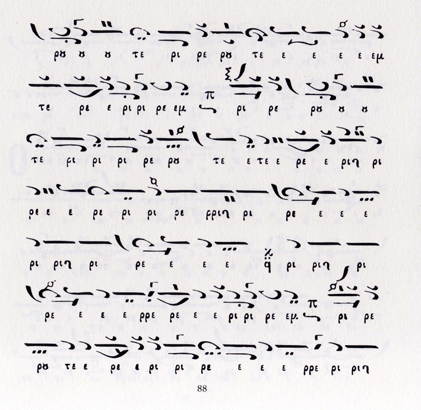 ρȣ ȣ ȣ τε ρι ρε ρȣ τε ε ε ε ε εμ
τε ρε ε ρι ρι ρε εμ π ρι ρε ρȣ ȣ ȣ
τε ρι ρι ρε ρȣ τε ε τε ε ρε ε ριη ρι
ρε ε ε ρε ρι ρι ρε ρριη ρι ρε ε ε
ρι ριη ρι ρε ε ε ε q ρι ριη ρι
ρε ε ε ε ρρε ρε ε ε ε ρι ρι ρε εμ π ρι ρε
ρȣ τε ε ρε ε ρι ρι ρε ε ε ε ρρε ρι ριη
88